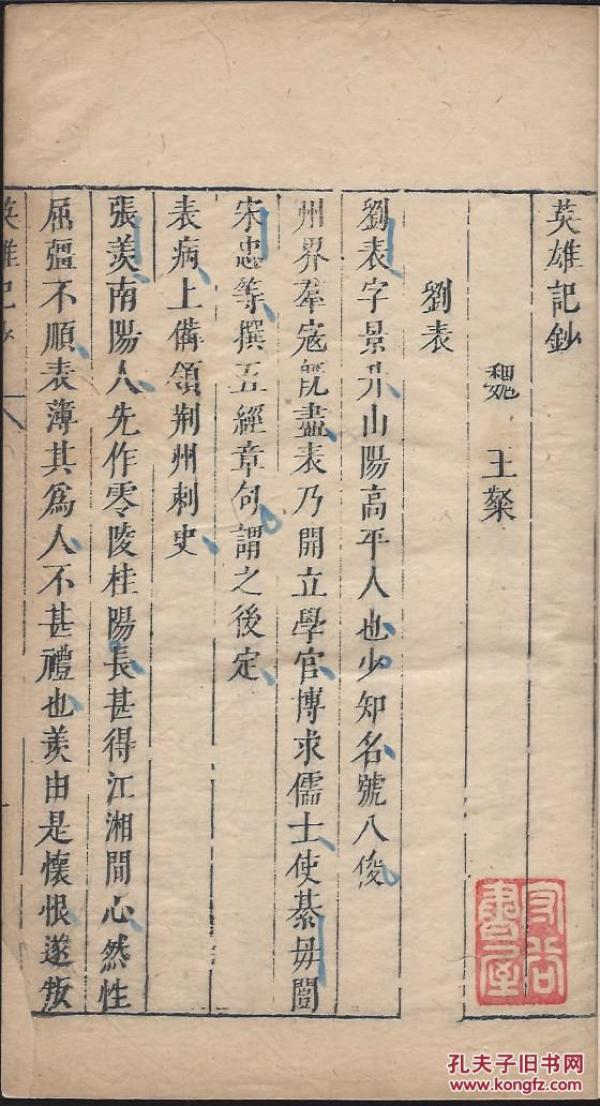 英雄記鈔
魏 王粲
劉表
劉表字景升山陽高平人也少知名號八俊
州界羣寇旣盡表乃開立學官博求儒士使綦毋闓
宋忠等撰五經章句謂之後定
表病上備領荆州刺史
張羨南陽人先作零陵桂陽長甚得江湘間心然性
屈彊不順表薄其爲人不甚禮也羨由是懷恨遂叛
英雄記鈔 八
書屋
孔夫子旧书网
www.kongfz.com